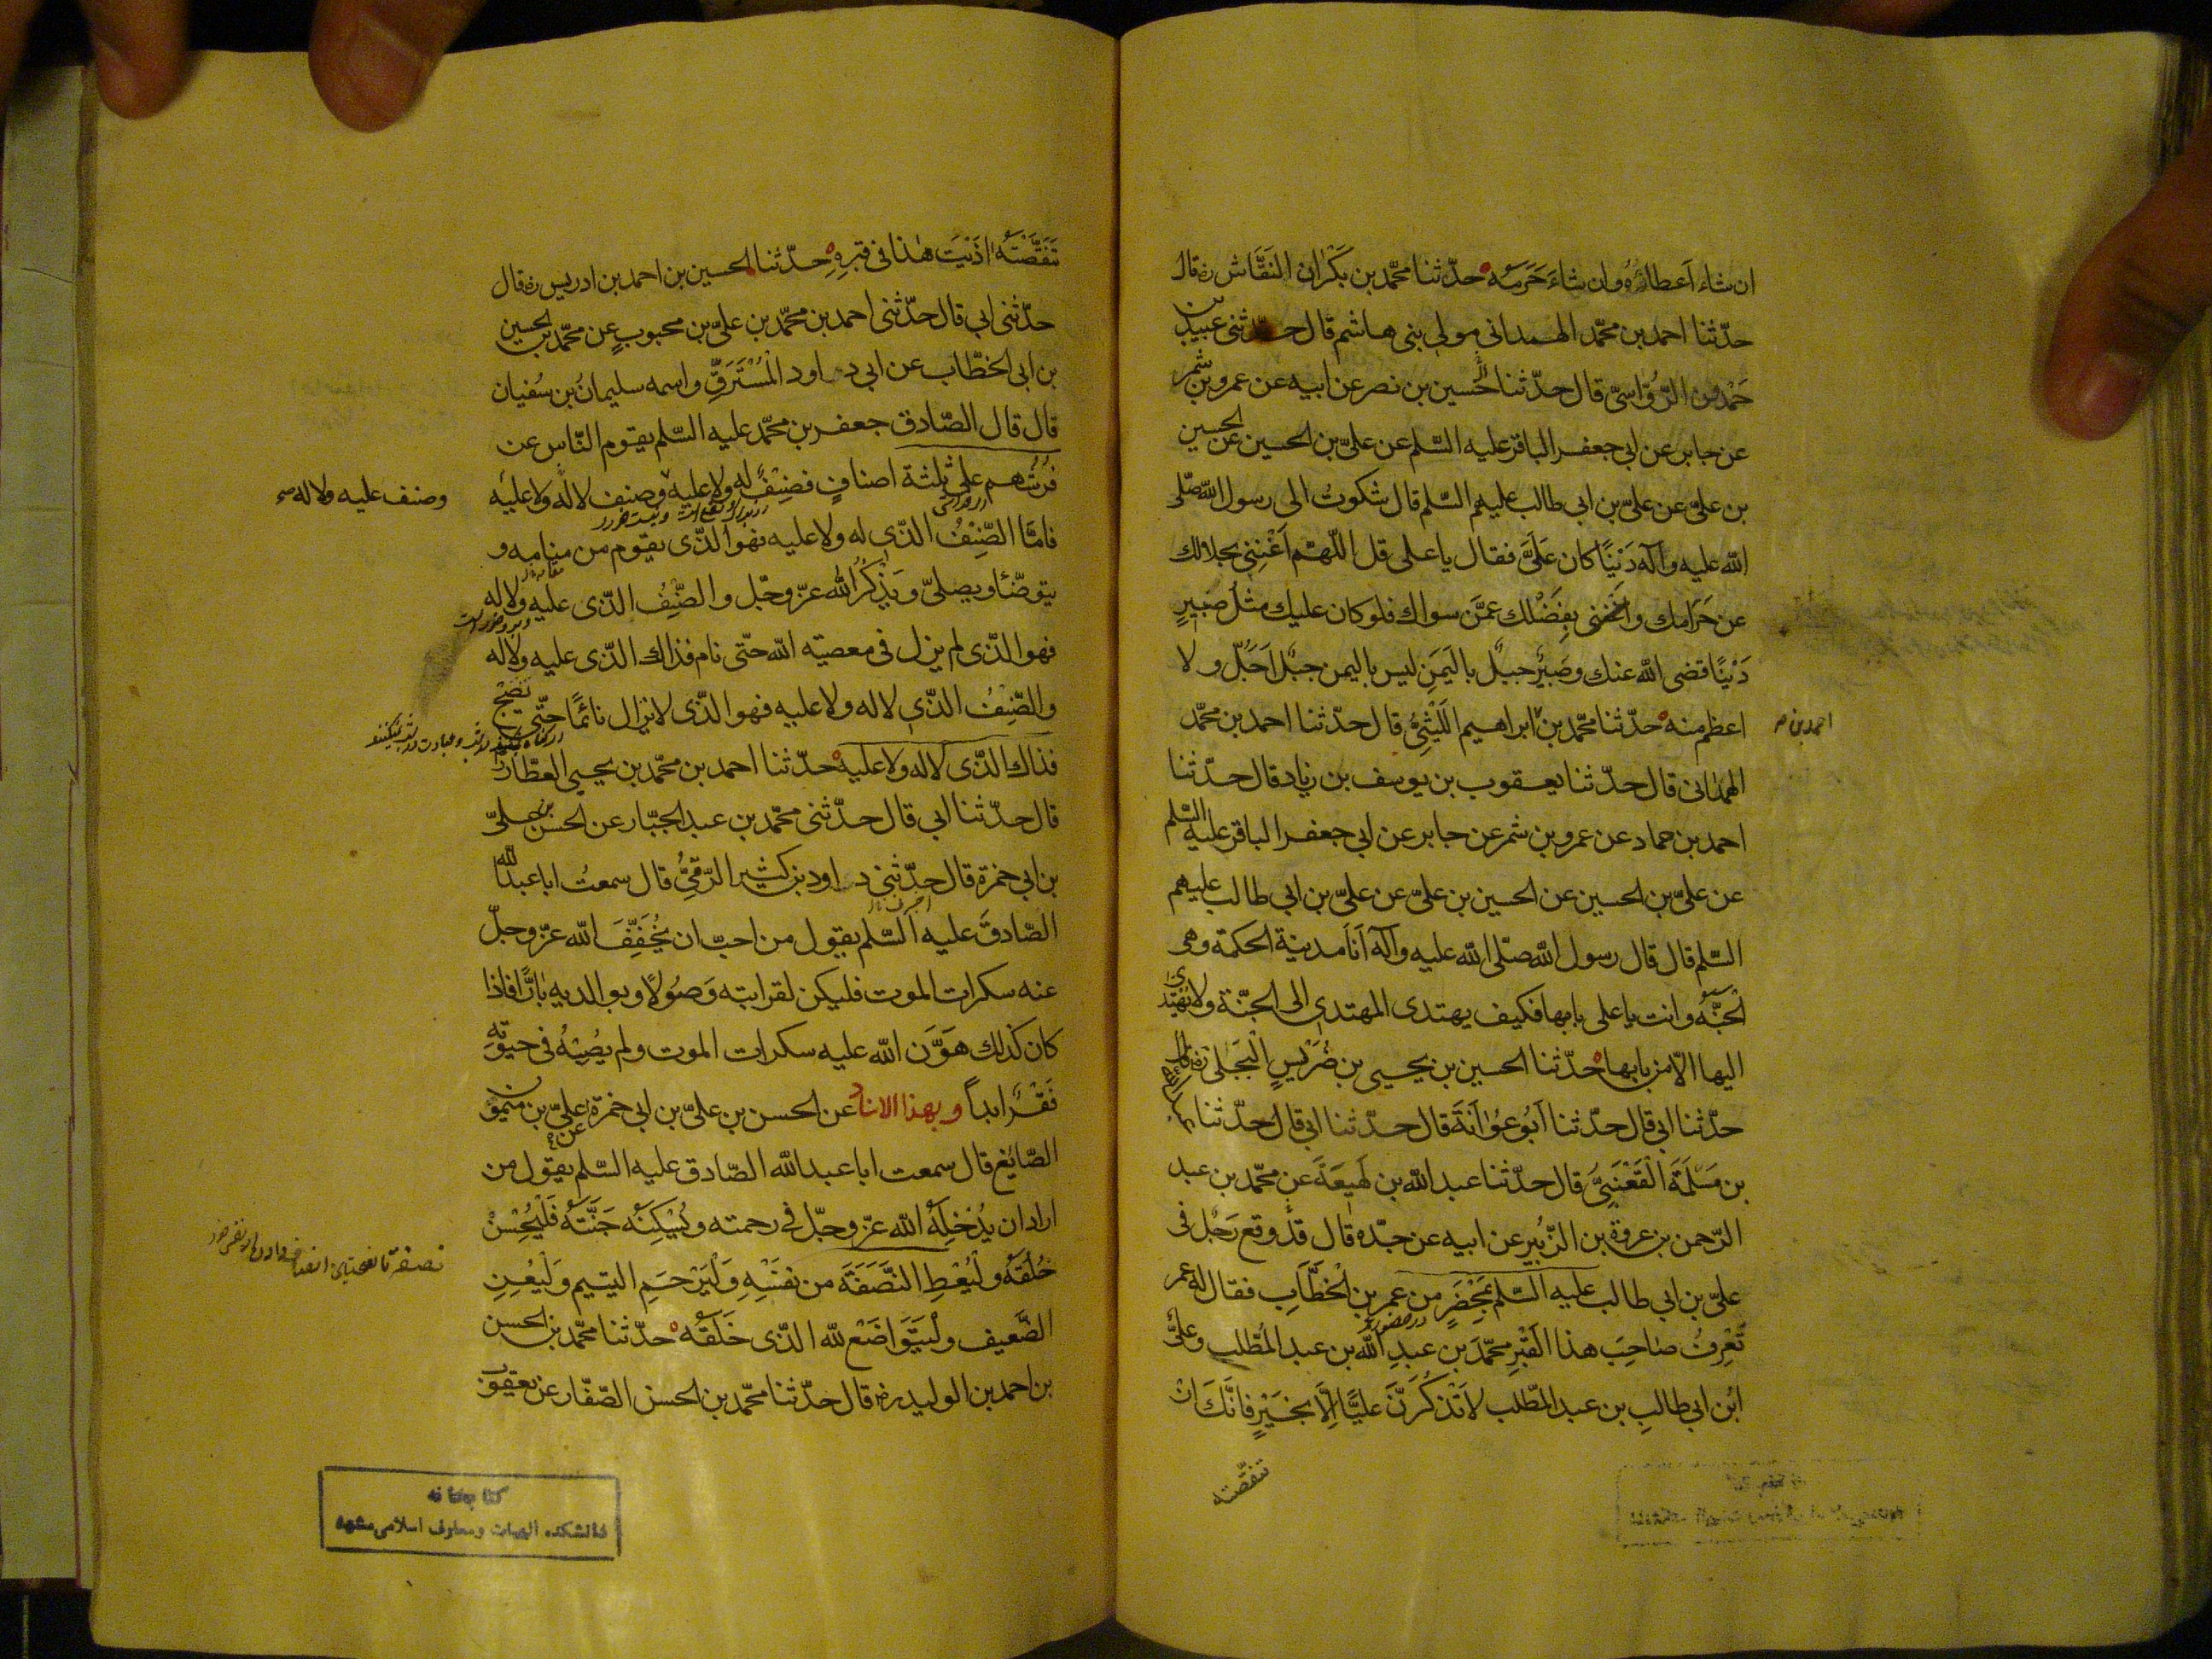 ان شاء اعطاه وان شاء حَرَمَهُ حدّثنا محمّد بن بَكْران النَقّاش ره قال
حدّثنا احمد بن محمّد الهمدانى مولى بنى هاشم قال حدّثنى عبيد بن
حَمْدون الرُّوّاسىّ قال حدّثنا حُسين بن نصر عن ابيه عن عمرو بن شمر
عن جابر عن ابى جعفر الباقر عليه السّلم عن علىّ بن الحسين عن الحسين
بن علىّ عن علىّ بن ابى طالب عليهم السّلم قال شكوتُ الى رسول اللّه صلّى
اللّه عليه وآله دَيْنًا كان عَلَىَّ فقال يا على قل اللّهمّ اَغْنِنِى بحلالك
عن حَرَامك و بِفَضْلك عمّن سواك فلو كان عليك مثلُ صَبِيرٍ
دَيْنًا قضى اللّه عنك وصَبِيرٌ جبلٌ باليَمَنِ ليس باليمن جبلٌ اَجَلُّ ولا
اعظم منه حدّثنا محمّد بن ابراهيم اللَّيْثِىُّ قال حدّثنا احمد بن محمّد
احمد بن صح
الهمدانى قال حدّثنا يعقوب بن يوسف بن زياد قال حدّثنا
احمد بن حماد عن عمرو بن شمر عن جابر عن ابى جعفر الباقر عليه السّلم
عن علىّ بن الحسين عن الحسين بن علىّ عن علىّ بن ابى طالب عليهم
السّلم قال قال رسول اللّه صلّى اللّه عليه وآله اَنَا مدينة الحكمة وهى
الْجَنَّةُ وانت يا على بابها فكيف يهتدى المهتدى الى الجنّة ولا يُهْتَدى
اليها الاّ من بابها حدّثنا الحسين بن يحيى بن ضُرَيْسٍ الْبَجَلى ره قال
حدّثنا ابى قال حدّثنا اَبُو عَوَانَةَ قال حدّثنا ابى قال حدّثنا عبد اللّه
بن مَسْلَمَةَ الْقَعْنَبِىّ قال حدّثنا عبد اللّه بن لَهِيعَةَ عن محمّد بن عبد
الرّحمن بن عروة بن الزّبير عن ابيه عن جدّه قال قد وقع رَجُلٌ فى
علىّ بن ابى طالب عليه السّلم بِمَحْضَرٍ من عمر بن الْخَطَّابِ فقال له عمر
تَعْرِفُ صاحِبَ هذا الْقَبْرِ محمّدَ بن عبدِ اللّه بن عبد المُطّلب وعلىُّ
در حضور
ابْن ابى طالبِ بن عبد المُطّلب لا تَذْكُرَنَّ عليًّا اِلَّا بخَيْرٍ فانّكَ انْ
تنقّصته
تَنَقَّصْتَهُ اذَيْتَ هذا فى قبره حدّثنا الحسين بن احمد بن ادريس ره قال
حدّثنى ابى قال حدّثنى احمد بن محمّد بن علىّ بن محبوبٍ عن محمّد بن الحسين
بن ابى الخطّاب عن ابى داود الْمُسْتَرَقِّ واسمه سليمانُ بن سُفيان
قال قال الصّادق جعفر بن محمّد عليه السّلم يقوم النّاس عن
فُرُشهم على ثلثة اصنافٍ فصِنْفٌ له ولا عليه وصنف لا له ولا عليه
وصنف عليه ولا له صح
فامّا الصِّنْفُ الذّى له ولا عليه فهو الذّى يقوم من منامه و
يتوضّأ ويصلىّ ويَذْكُرُ اللّه عزّ وجّل والصِّنْفُ الذّى عليه ولا له
فهو الذّى لم يزل فى معصيته اللّه حتّى نام فذاك الذّى عليه ولا له
والصِّنْفُ الذّى لا له ولا عليه فهو الذّى لا يزال نائمًا حتّى يُصْبِحَ
فذاك الذّى لا له ولا عليه حدّثنا احمد بن محمّد بن يحيى العطّار ره
قال حدّثنا ابى قال حدّثنى محمّد بن عبد الجبّار عن الحسن بن علىّ
بن ابى حمزة قال حدّثنى داود بن كثير الرّقىُّ قال سمعتُ ابا عبد اللّه
الصّادقَ عليه السّلم يقول من احبّ ان يُخَفِّفَ اللّه عزّ وجلّ
عنه سكرات الموت فليكن لقرابته وَصُولًا وبوالديه بارًّا فاذا
كان كذلك هَوَّنَ اللّه عليه سكرات الموت ولم يُصِبْهُ فى حيوته
فَقْرٌ ابداً وبهذا الاسناد عن الحسن بن علىّ بن ابى حمزة عن علىّ بن ميمون
الصّايغ قال سمعت ابا عبد اللّه الصّادق عليه السّلم يقول من
اراد ان يُدْخِلَهُ اللّه عزّ وجلّ فى رحمته ويُسْكِنَهُ جَنَّتَهُ فَلْيُحْسِنْ
خُلْقَهُ ولْيُعْطِ النَّصَفَةَ من نفسِهِ وَلْيَرْحَمِ اليتيم وَلْيُعِنِ
الضَّعيف ولْيَتَوَاضَعْ للّه الذّى خَلَقَهُ حدّثنا محمّد بن الحسن
بن احمد بن الوليد ره قال حدّثنا محمّد بن الحسن الصّفّار عن يعقوب
كتابخانه
دانشكده الهيات ومعارف اسلامى مشهد